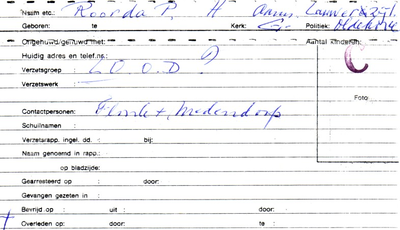 Naam etc. Roorda P. H
Geboren: te Kerk: G. Politiek:
Ongehuwd/gehuwd met: Aantal kinderen:
Huidig adres en telef.ns.:
Verzetsgroep : L O O.D.
Verzetswerk :
Foto
Contactpersonen:
Schuilnaam :
Verzetsrapp. ingel. dd. : bij:
Naam genoemd in rapp.:
op bladzijde:
Gearresteerd op : door:
Gevangen gezeten in :
Bevrijd op : uit : door:
Overleden op: door: te :